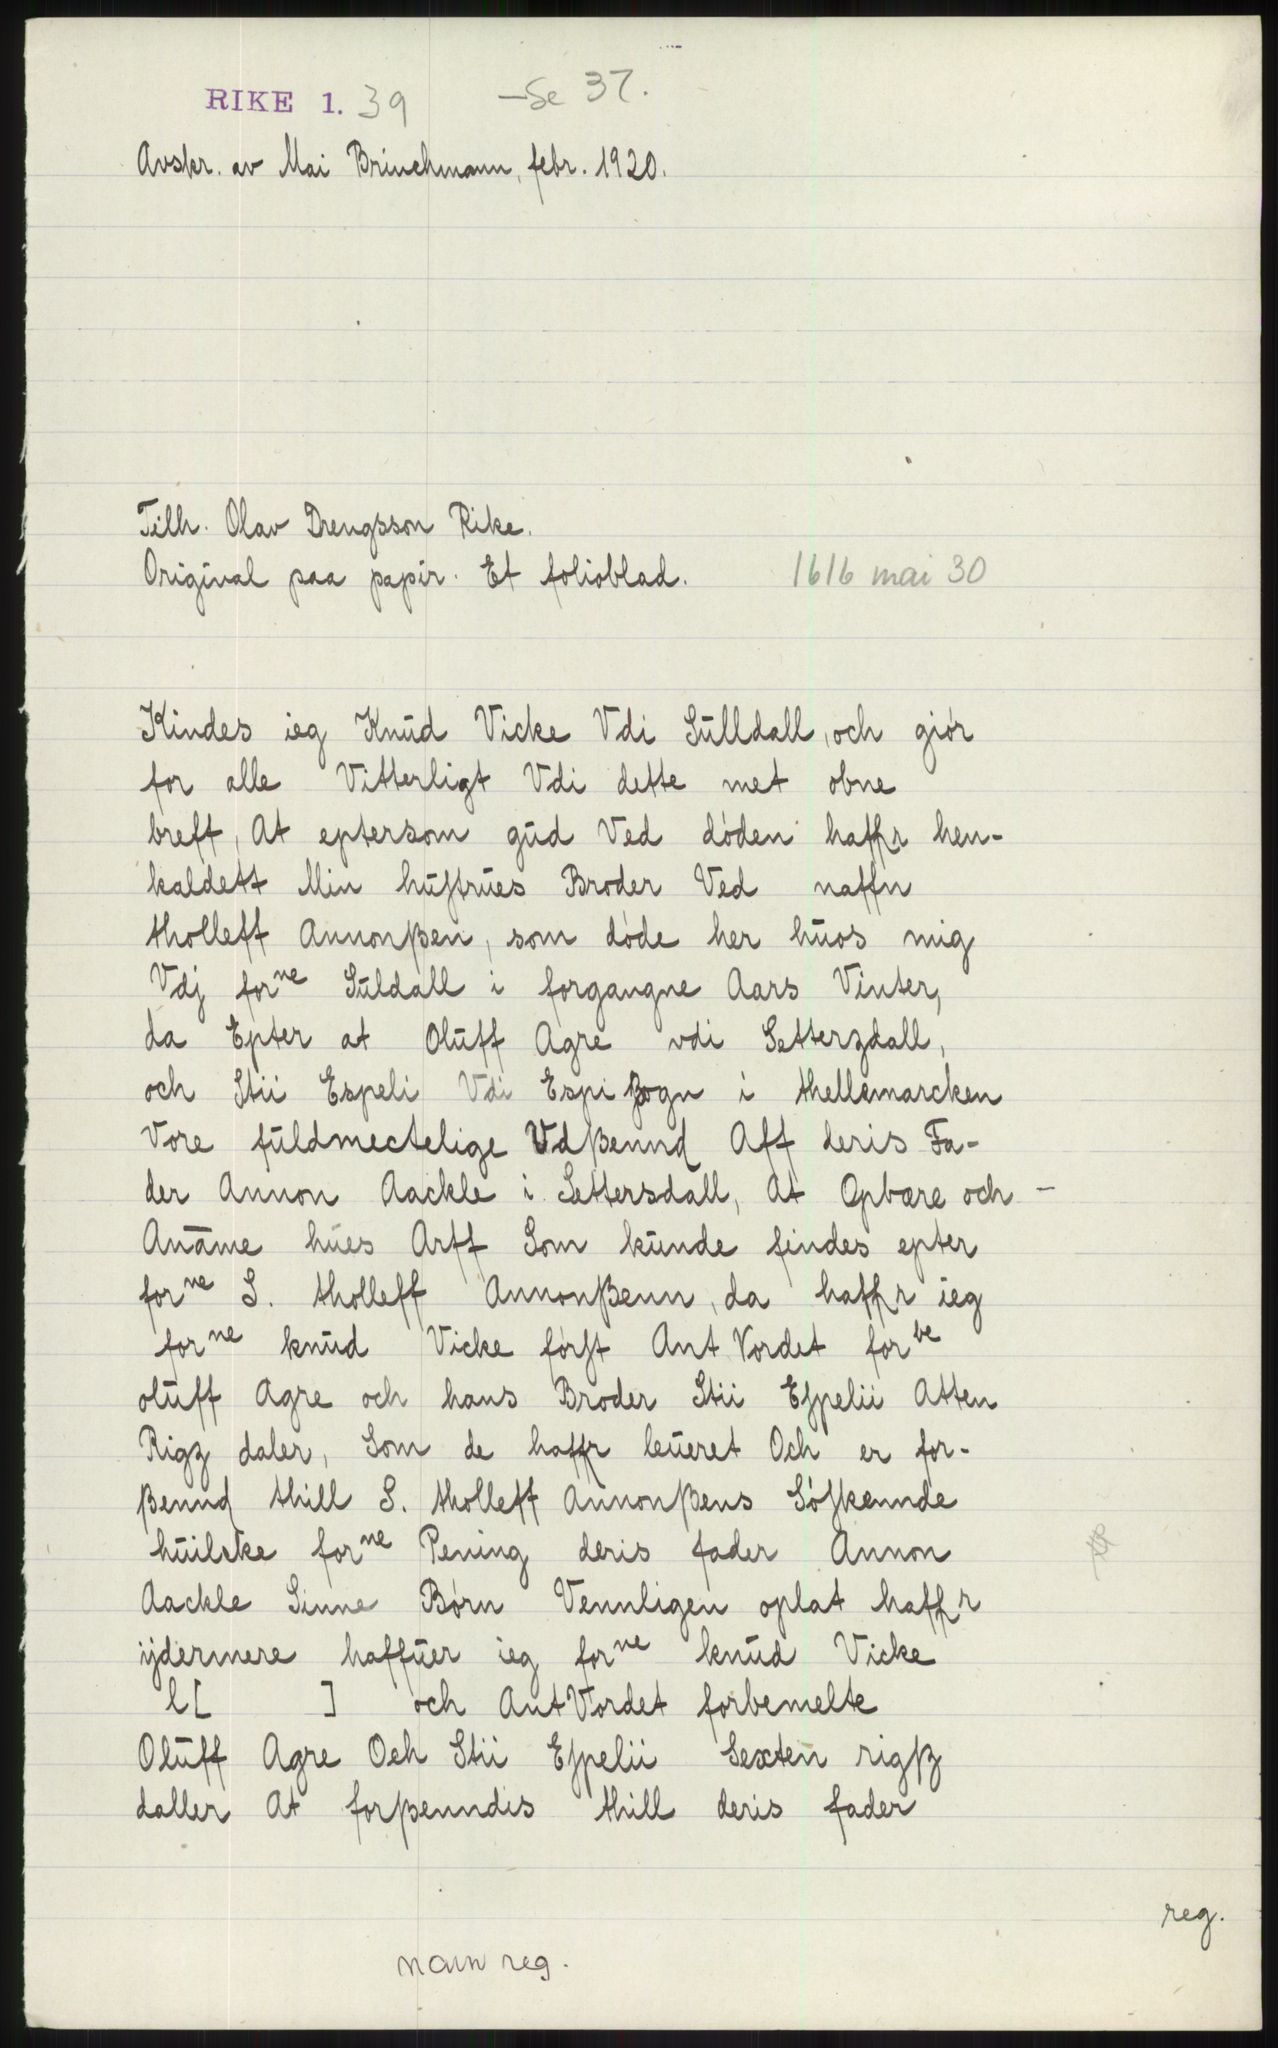 RIKE 1. 39 — Se 37.
Avskr. av Mai Brinchmann, febr. 1920.
Tilh. Olav Drengsson Rike.
Original paa papir. Et folioblad. 1616 mai 30
Kindes ieg Knud Vicke Vdi Sulldall, och giór
for alle Vitterligt Vdi dette met obne
breff, At eptersom gud Ved dóden haffr hen-
kaldett Min hustrues Broder Ved naffn
tholleff Annonßen, som dóde her huos mig
Vdj forne Suldall i forgangne Aars Vinter,
da Epter at Oluff Agre vdi Setterzdall,
och Stii Espeli Vdi Espi Zogn i thellemarcken
Vore fuldmectelige Vdßennd Aff deris Fa-
der Annon Aackle i Settersdall, At Opbære och -
Anāme hues Arff Som kunde findes epter
forne S. tholleff Annonßenn, da haffr ieg
forne knud Vicke fórst Ant Vordet forbe
oluff Agre och hans Broder Stii Espelii Atten
Rigz daler, Som de haffr leueret Och er for-
ßennd thill S. tholleff Annonßens Sóskennde
huilcke forne Pening deris fader Annon
Aackle Sinne Bórn Vennligen oplat haffr
ijdermere haffuer ieg forne knud Vicke
l[ ] och AntVordet forbemelte
Oluff Agre Och Stii Espelii Sexten rigßz
daller At forßenndis thill deris fader
reg.
navn reg.